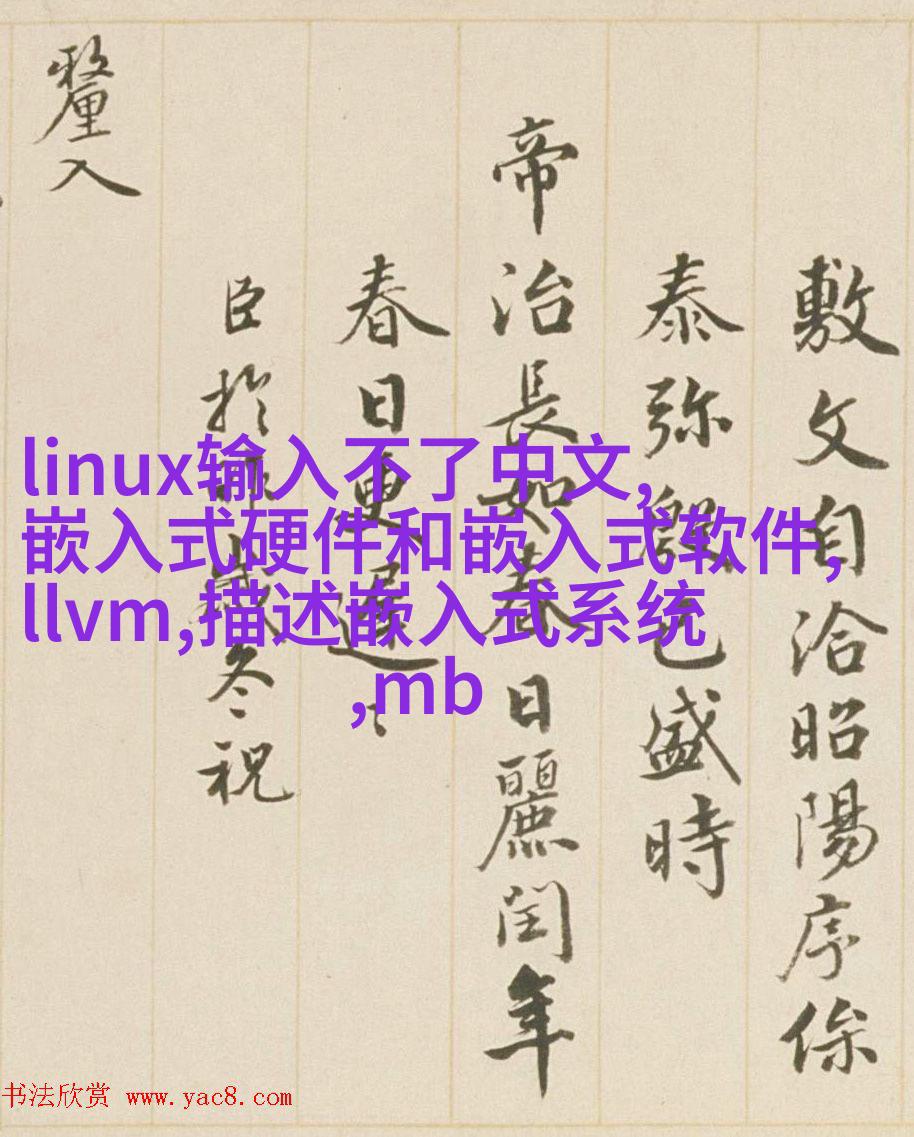 敷文自洽昭陽序
泰弥盛時
帝治長如春日麗閏年
春日更遲
臣於歲冬祝
釐入
linux输入不了中文,
嵌入式硬件和嵌入式软件,
llvm,描述嵌入式系统
,mb
书法欣赏 www.yac8.com